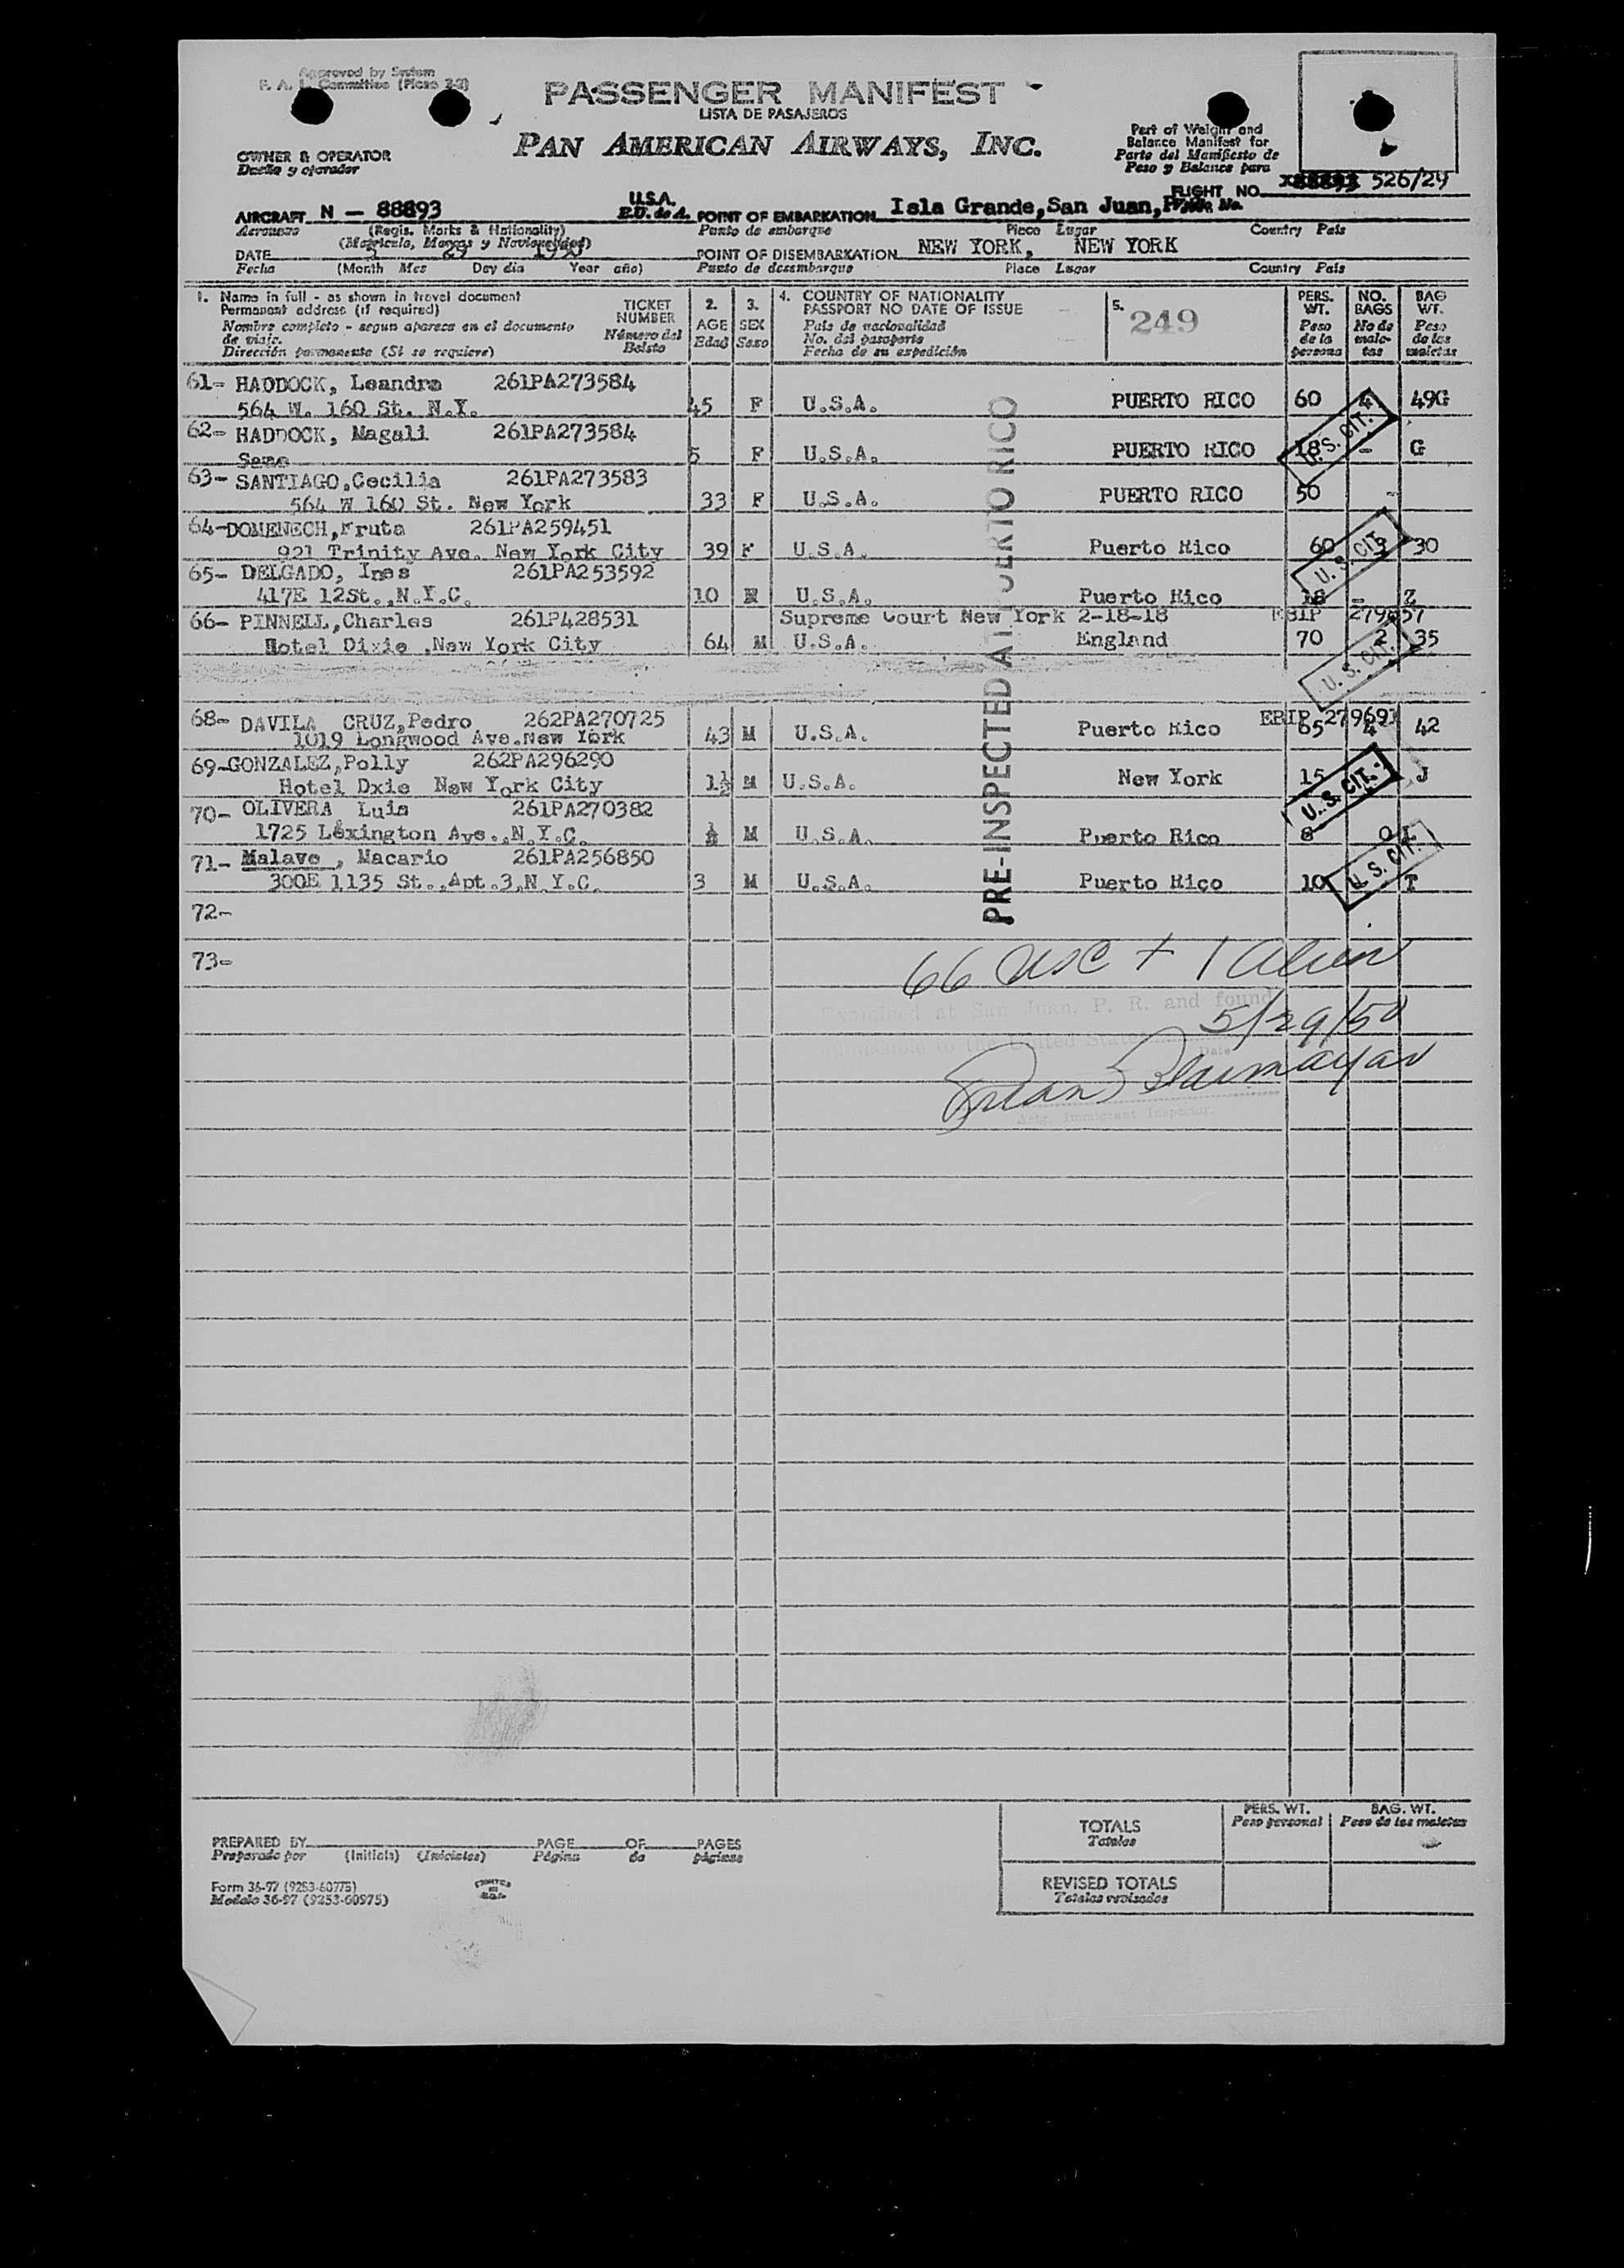 Approved by System
F. A. L. Committee (Picao 3-2)
PASSENGER MANIFEST
LISTA DE PASAJEROS
PAN AMERICAN AIRWAYS, INC.
OWNER & OPERATOR
Dueño y operador
Part of Weight and
Balance Manifest for
Parte del Manifiesto de
Peso y Balance para
FLIGHT NO. 526/29
AIRCRAFT N - 88893
Aeronave (Regis. Marks & Nationality)
(Matricula, Marcas y Nacionalidad)
U.S.A.
E.U. de A.
POINT OF EMBARKATION Isla Grande, San Juan,
Punto de embarque Place Lugar Country Pais
DATE 5 29 1950
Fecha (Month Mes Day dia Year año)
POINT OF DISEMBARKATION NEW YORK, NEW YORK
Punto de desembarque Place Lugar Country Pais
1. Name in full - as shown in travel document
Permanent address (if required)
Nombre completo - segun aparece en el documento
de viaje.
Dirección permanente (Si se requiere)
TICKET
NUMBER
Número del
Boleto
2.
AGE
Edad
3.
SEX
Sexo
4. COUNTRY OF NATIONALITY
PASSPORT NO DATE OF ISSUE
Pais de nacionalidad
No. del pasaporte
Fecha de su expedición
5.
249
PERS.
WT.
Peso
de la
persona
NO.
BAGS
No de
male-
tas
BAG
WT.
Peso
de las
maletas
61- HADDOCK, Leandra 261PA273584
564 W. 160 St. N.Y. 45 F U.S.A. PUERTO RICO 60 4 49G
62- HADDOCK, Magali 261PA273584
Same 5 F U.S.A. PUERTO RICO 18 - G
63- SANTIAGO,Cecilia 261PA273583
564 W 160 St. New York 33 F U.S.A. PUERTO RICO 50 -
64-DOMENECH,Fruta 261PA259451
921 Trinity Ave. New York City 39 F U.S.A. Puerto Rico 60 3 30
65- DELGADO, Ines 261PA253592
417E 12St.,N.Y.C. 10 U.S.A. Puerto Rico 18 - Z
66- PINNELL,Charles 261P428531 Supreme Court New York 2-18-18 EBIP 279657
Hotel Dixie ,New York City 64 M U.S.A. England 70 2 35
68- DAVILA CRUZ,Pedro 262PA270725 EBIP 279693
1019 Longwood Ave.New York 43 M U.S.A. Puerto Rico 65 4 42
69-GONZALEZ,Polly 262PA296290
Hotel Dxie New York City 1½ M U.S.A. New York 15 J
70- OLIVERA Luis 261PA270382
1725 Lexington Ave.,N.Y.C. ½ M U.S.A. Puerto Rico 8 0 L
71- Malave , Macario 261PA256850
300E 1135 St.,Apt.3,N.Y.C. 3 M U.S.A. Puerto Rico 10 T
72-
73-
PRE-INSPECTED AT PUERTO RICO
U. S. CIT.
U. S. CIT.
U. S. CIT.
U. S. CIT.
U. S. CIT.
66 USC + 1 Alien
Examined at San Juan, P. R. and found
5/29/50
admissible to the United States
Date
Actg. Immigrant Inspector.
PREPARED BY PAGE OF PAGES
Preparado por (Initials) (Iniciales) Página de páginas
Form 36-97 (9253-60775)
Modelo 36-97 (9253-60975)
TOTALS
Totales
PERS. WT.
Peso personal
BAG. WT.
Peso de las maletas
REVISED TOTALS
Totales revisados